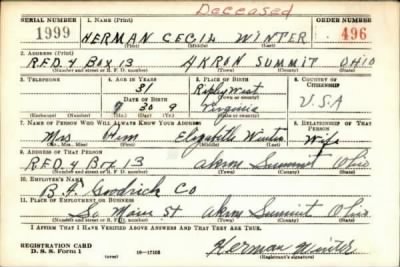 Deceased
SERIAL NUMBER 1. NAME (Print) ORDER NUMBER
1999 HERMAN CECIL WINTER 496
(First) (Middle) (Last)
2. ADDRESS (Print)
R.F.D. 4 Box 13 AKRON SUMMIT OHIO
(Number and street or R. F. D. number) (Town) (County) (State)
3. TELEPHONE 4. AGE IN YEARS 5. PLACE OF BIRTH 6. COUNTRY OF CITIZENSHIP
31 Ripley West
DATE OF BIRTH (Town or county)
9 30 9 Virginia U.S.A
(Exchange) (Number) (Mo.) (Day) (Yr.) (State or country)
7. NAME OF PERSON WHO WILL ALWAYS KNOW YOUR ADDRESS 8. RELATIONSHIP OF THAT PERSON
Mrs Elizabeth Winter Wife
(Mr., Mrs., Miss) (First) (Middle) (Last)
9. ADDRESS OF THAT PERSON
R.F.D. 4 Box 13 Akron Summit Ohio
(Number and street or R. F. D. number) (Town) (County) (State)
10. EMPLOYER'S NAME
B. F. Goodrich Co
11. PLACE OF EMPLOYMENT OR BUSINESS
So Main St Akron Summit Ohio
(Number and street or R. F. D. number) (Town) (County) (State)
I AFFIRM THAT I HAVE VERIFIED ABOVE ANSWERS AND THAT THEY ARE TRUE.
REGISTRATION CARD
D. S. S. Form 1 (over) Herman Winter
(Registrant's signature)